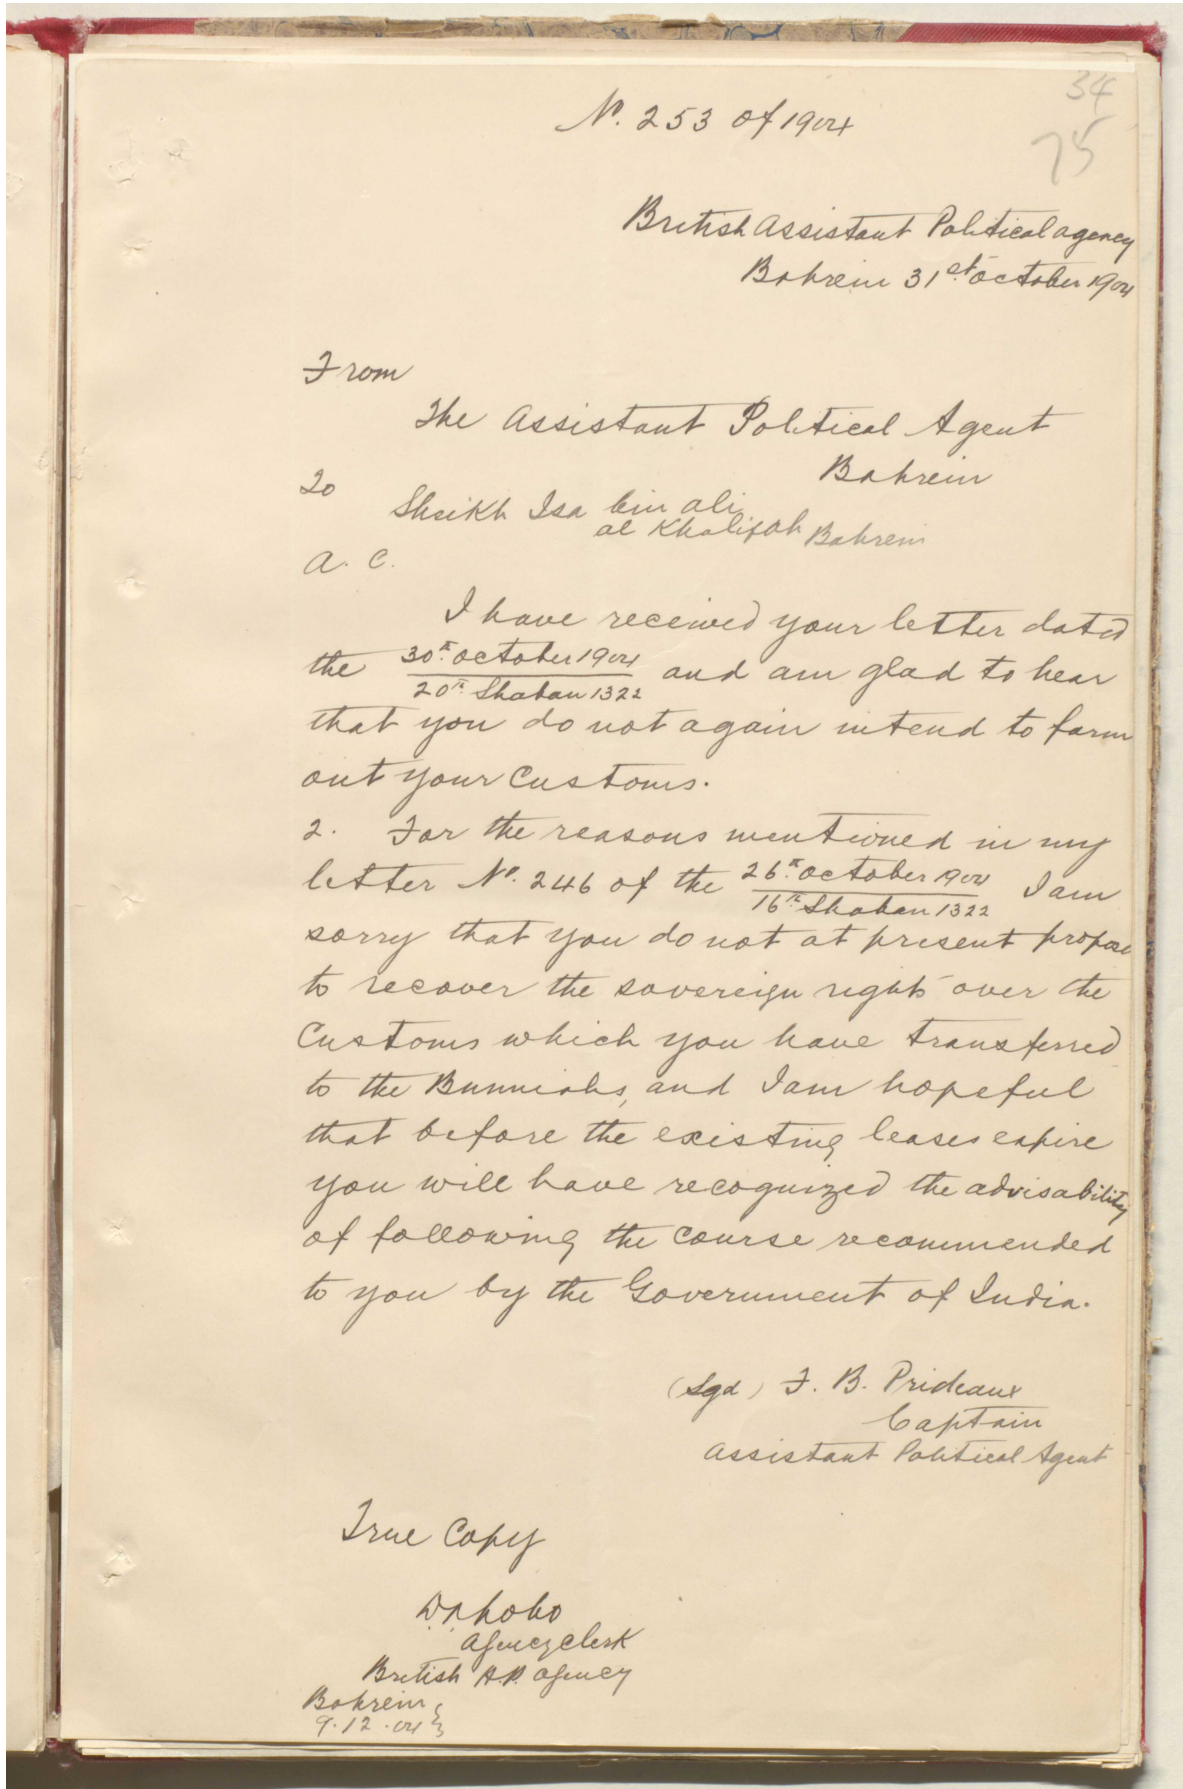 34
75
No. 253 of 1904
British Assistant Political Agency
Bahrein 31st October 1904
From
The Assistant Political Agent
Bahrein
To
Sheikh Isa bin ali
al Khalifah Bahrein
A. C.
I have received your letter dated
30th October 1904
the and am glad to hear
20th Shaban 1322
that you do not again intend to farm
out your Customs.
2. For the reasons mentioned in my
26th October 1904
letter No. 246 of the I am
16th Shaban 1322
sorry that you do not at present propose
to recover the sovereign rights over the
Customs which you have transferred
to the Bunniahs, and I am hopeful
that before the existing leases expire
you will have recognized the advisability
of following the course recommended
to you by the Government of India.
(Sgd) F. B. Prideaux
Captain
Assistant Political Agent
True Copy
Agency Clerk
British A.P. Agency
Bahrein
9.12.04